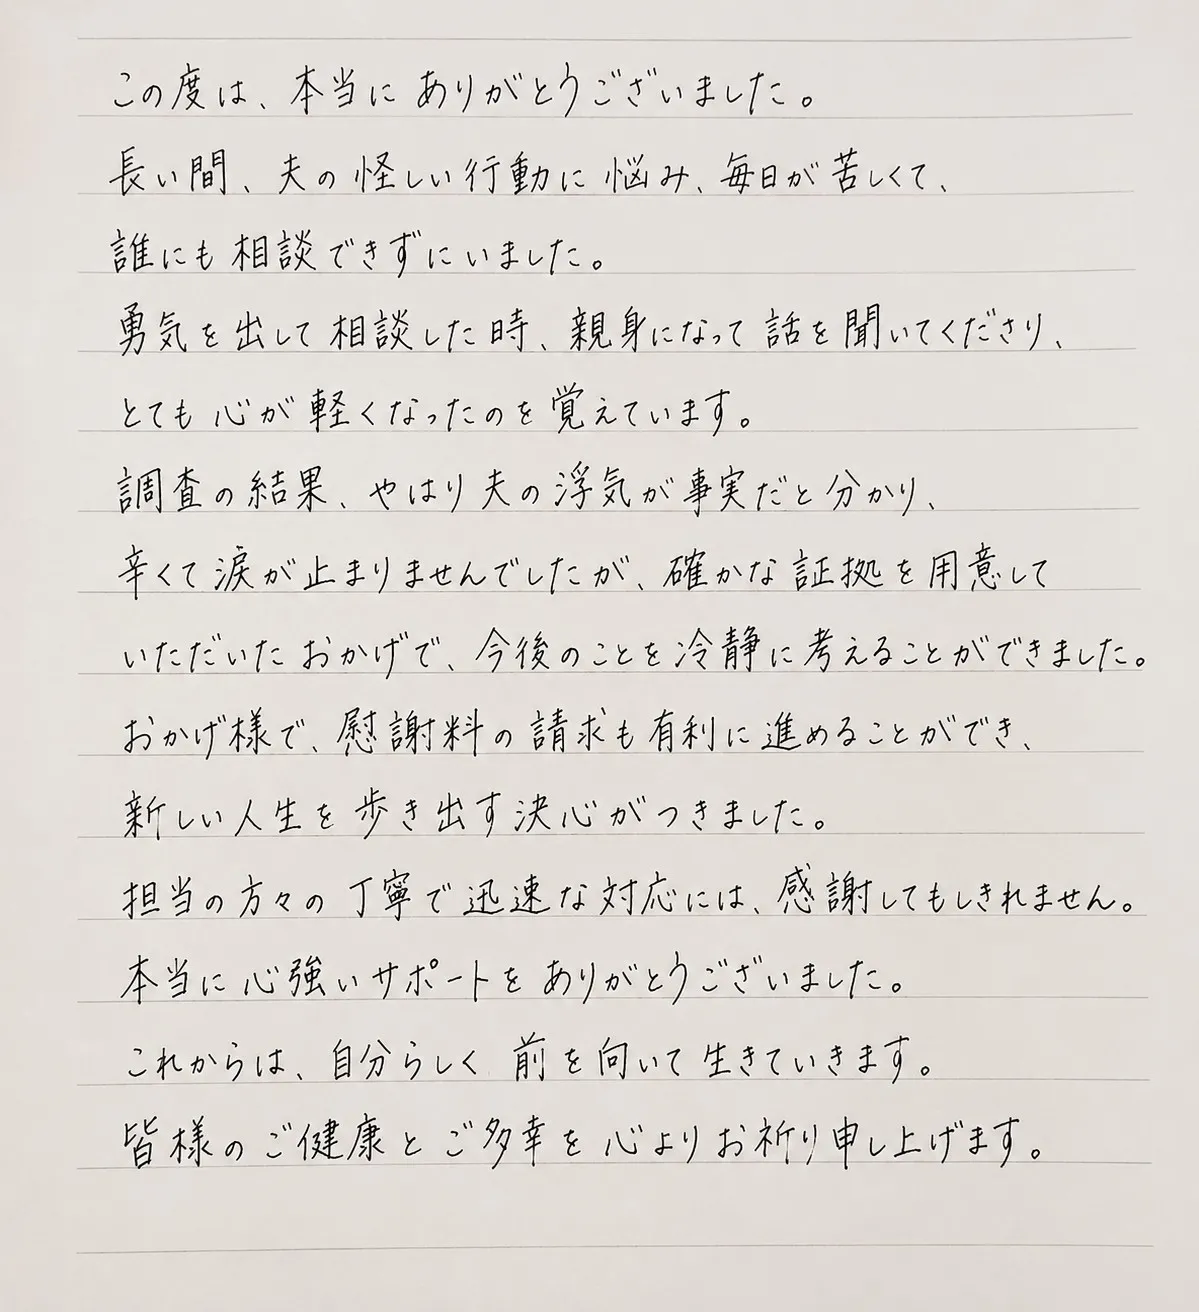 この度は、本当にありがとうございました。
長い間、夫の怪しい行動に悩み、毎日が苦しくて、
誰にも相談できずにいました。
勇気を出して相談した時、親身になって話を聞いてくださり、
とても心が軽くなったのを覚えています。
調査の結果、やはり夫の浮気が事実だと分かり、
辛くて涙が止まりませんでしたが、確かな証拠を用意して
いただいたおかげで、今後のことを冷静に考えることができました。
おかげ様で、慰謝料の請求も有利に進めることができ、
新しい人生を歩き出す決心がつきました。
担当の方々の丁寧で迅速な対応には、感謝してもしきれません。
本当に心強いサポートをありがとうございました。
これからは、自分らしく前を向いて生きていきます。
皆様のご健康とご多幸を心よりお祈り申し上げます。